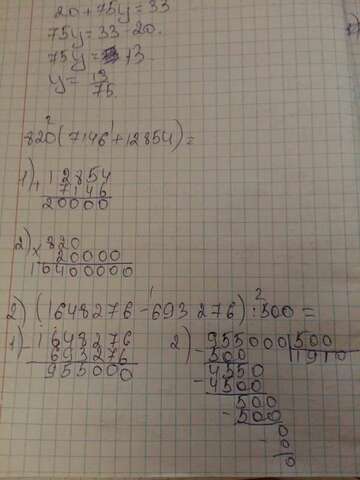 20 + 75y = 33
75y = 33 - 20.
75y = 13.
y = 13/75.
2 1
820(7146 + 12854) =
1) 12854
+ 7146
20000
2) × 820
20000
16400000
1 2
2) (1648276 - 693276) : 500 =
1) - 1648276
693276
955000
2) - 955000 | 500
500 1910
4550
- 4500
500
- 500
0
- 0
0